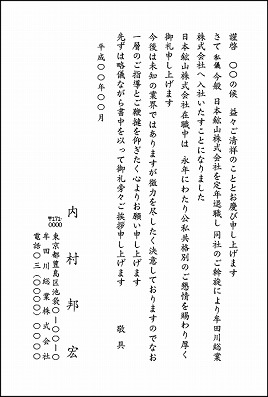 謹啓　〇〇の候　益々ご清祥のこととお慶び申し上げます
さて 私儀 今般 日本鉱山株式会社を定年退職し 同社のご斡旋により牟田川総業
株式会社へ入社いたすことになりました
日本鉱山株式会社在職中は　永年にわたり公私共格別のご懇情を賜わり厚く
御礼申し上げます
今後は未知の業界ではありますが微力を尽したく決意しておりますのでなお
一層のご指導とご鞭撻を仰ぎたく心よりお願い申し上げます
先ずは略儀ながら書中を以って御礼旁々ご挨拶申し上げます　　敬具
平成〇〇年〇〇月
内村邦宏
〒171-0000
東京都豊島区池袋〇ー〇〇ー〇
牟田川総業株式会社
電話〇三（〇〇〇〇）〇〇〇〇